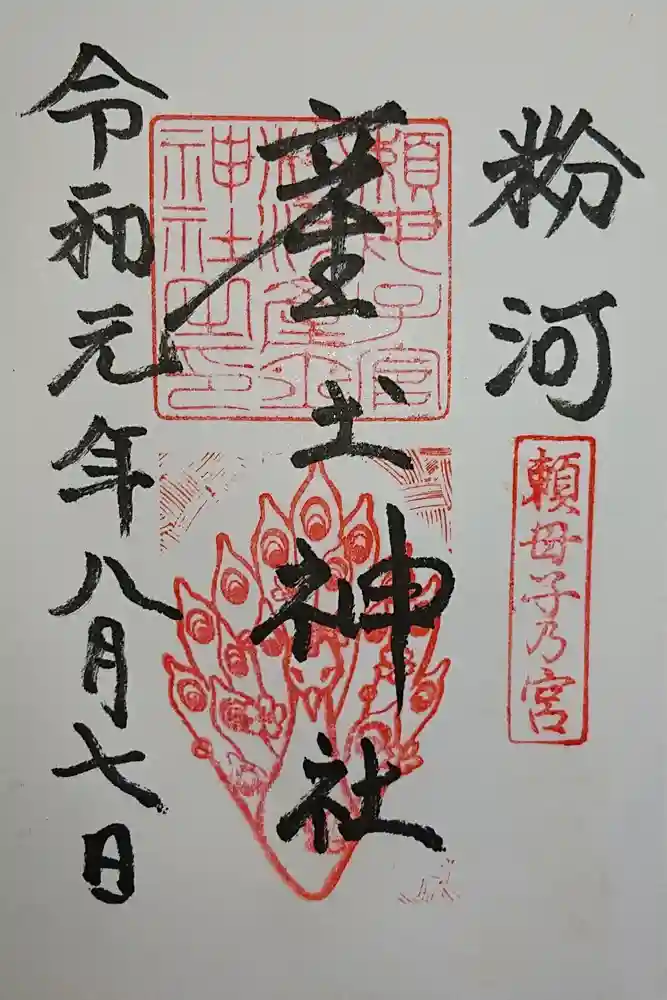 粉河
頼母子乃宮
産土神社
頼母子宮
粉河産土
神社之印
令和元年八月七日